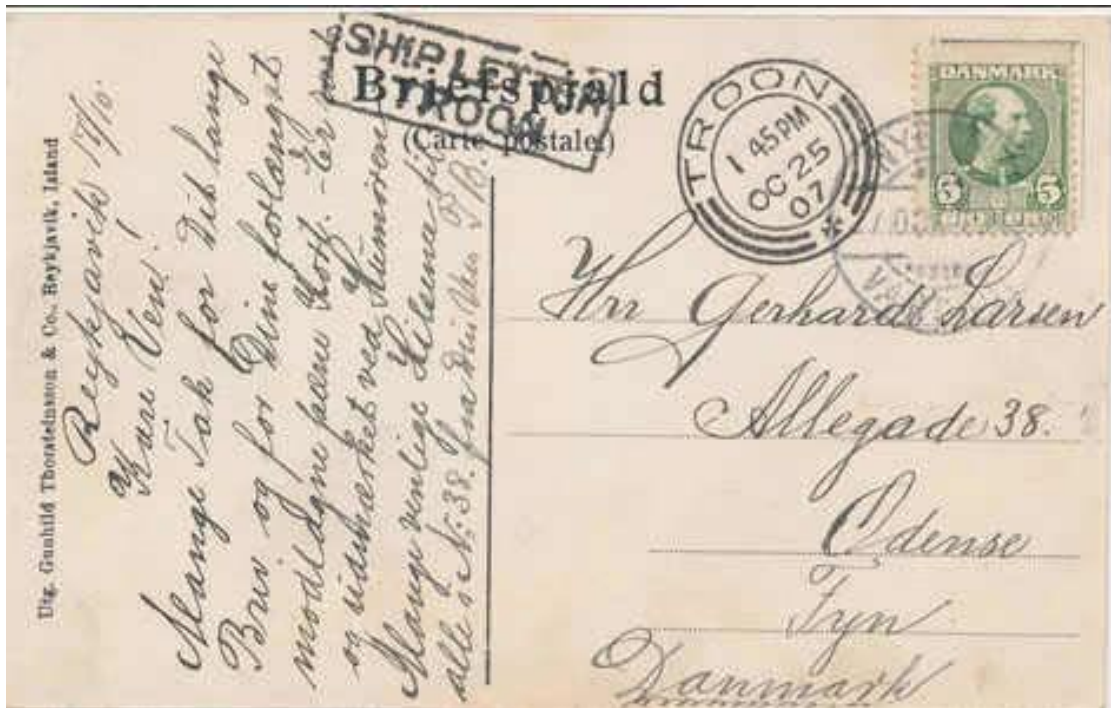 Utg. Gunhild Thorsteinsson & Co., Reykjavik, Island
Reykjavik 17/10.
Kære Ven!
Mange Tak for Dit lange
Brev og for Dine forlænget
modtagne pæne Kort. - Er
og ved
Mange venlige Hilsener til
alle i N: 38. fra din Ven
SHIP LETTER
TROON
Brjefspjald
(Carte postale)
TROON
1 45 PM
OC 25
07
DANMARK
5 5
Hrr Gerhardt Larsen
Allegade 38.
Odense
Fyn
Danmark